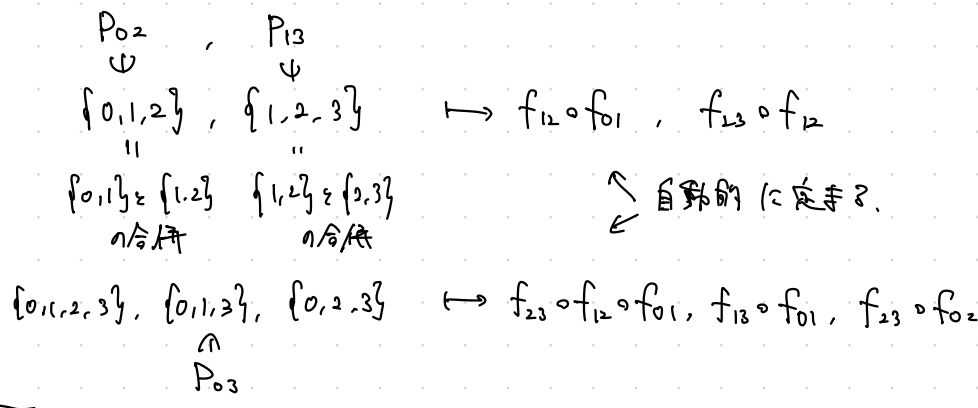 P₀₂ , P₁₃
{0,1,2} , {1,2,3} ⟼ f₁₂∘f₀₁ , f₂₃∘f₁₂
{0,1}と{1,2} {1,2}と{2,3} 自動的に定まる.
の合成 の合成
{0,1,2,3}, {0,1,3}, {0,2,3} ⟼ f₂₃∘f₁₂∘f₀₁, f₁₃∘f₀₁, f₂₃∘f₀₂
P₀₃